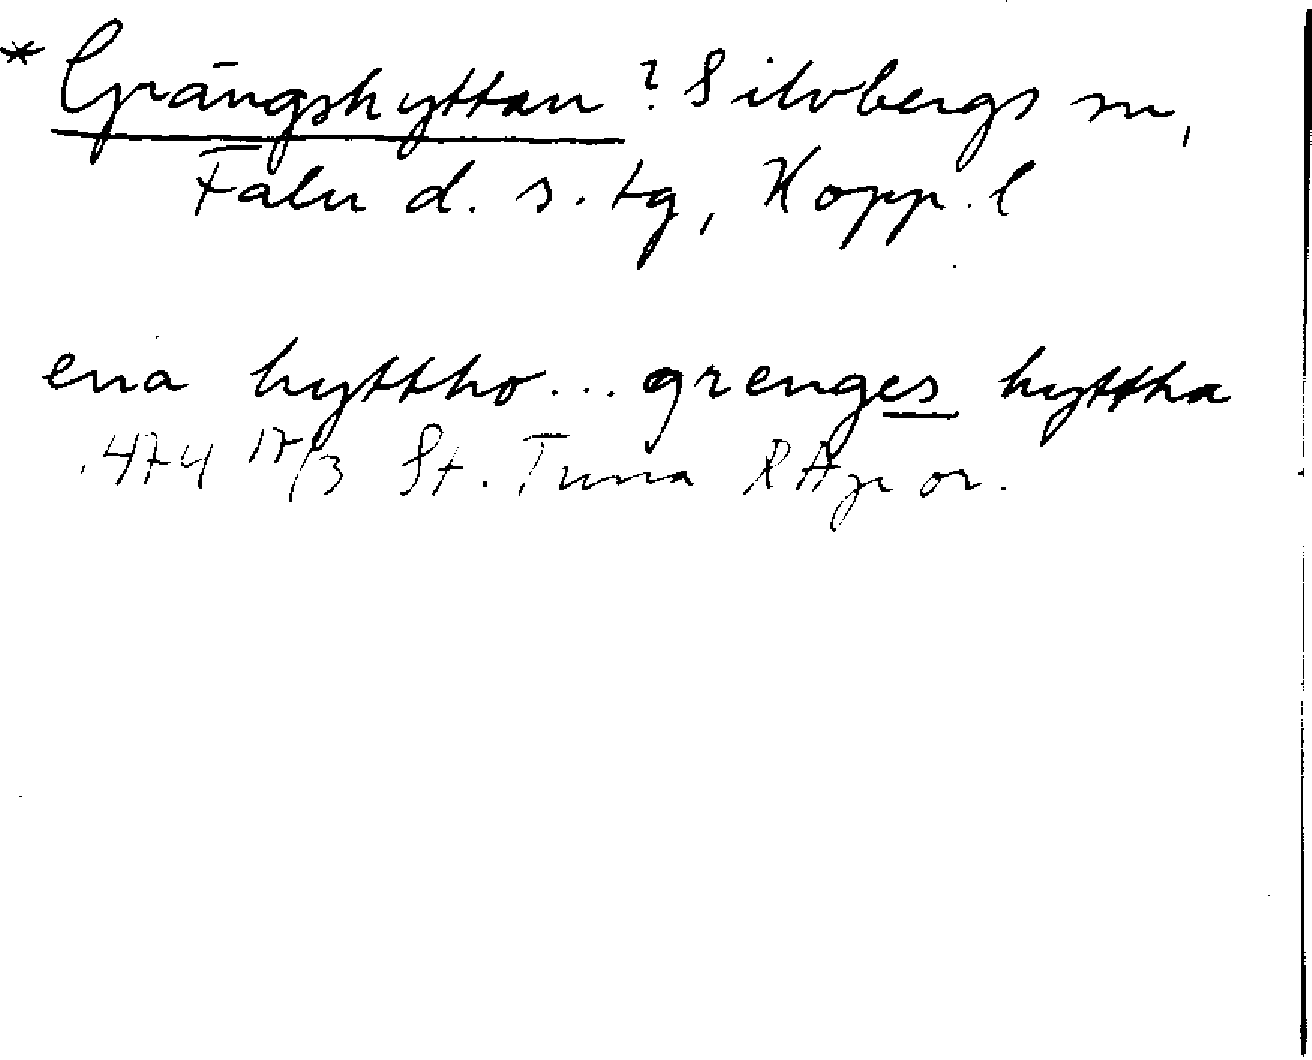 * Grängshyttan ? Silvbergs sn,
Falu d. s. tg, Kopp. l
ena hyttho... grenges hyttha
1474 17/3 St. Tuna RAp or.